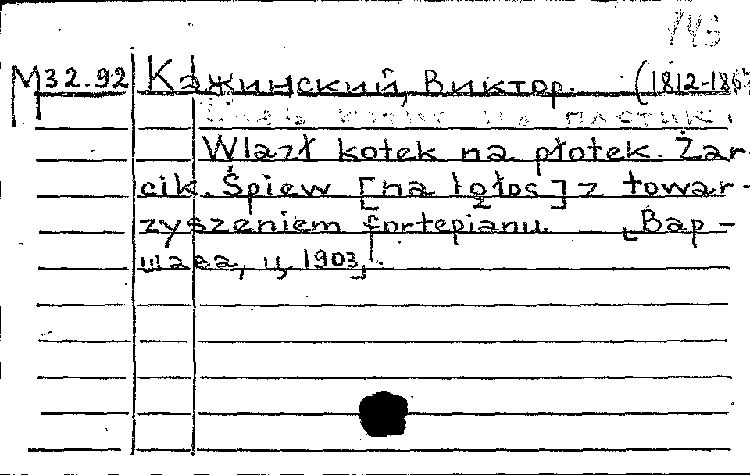 143
М32.92 Кажинский, Виктор. (1812-1867
Wlazł kotek na płotek. Żar-
cik. Śpiew [na 1głos] z towar-
zyszeniem fortepianu. [Вар-
шава, ц. 1903].